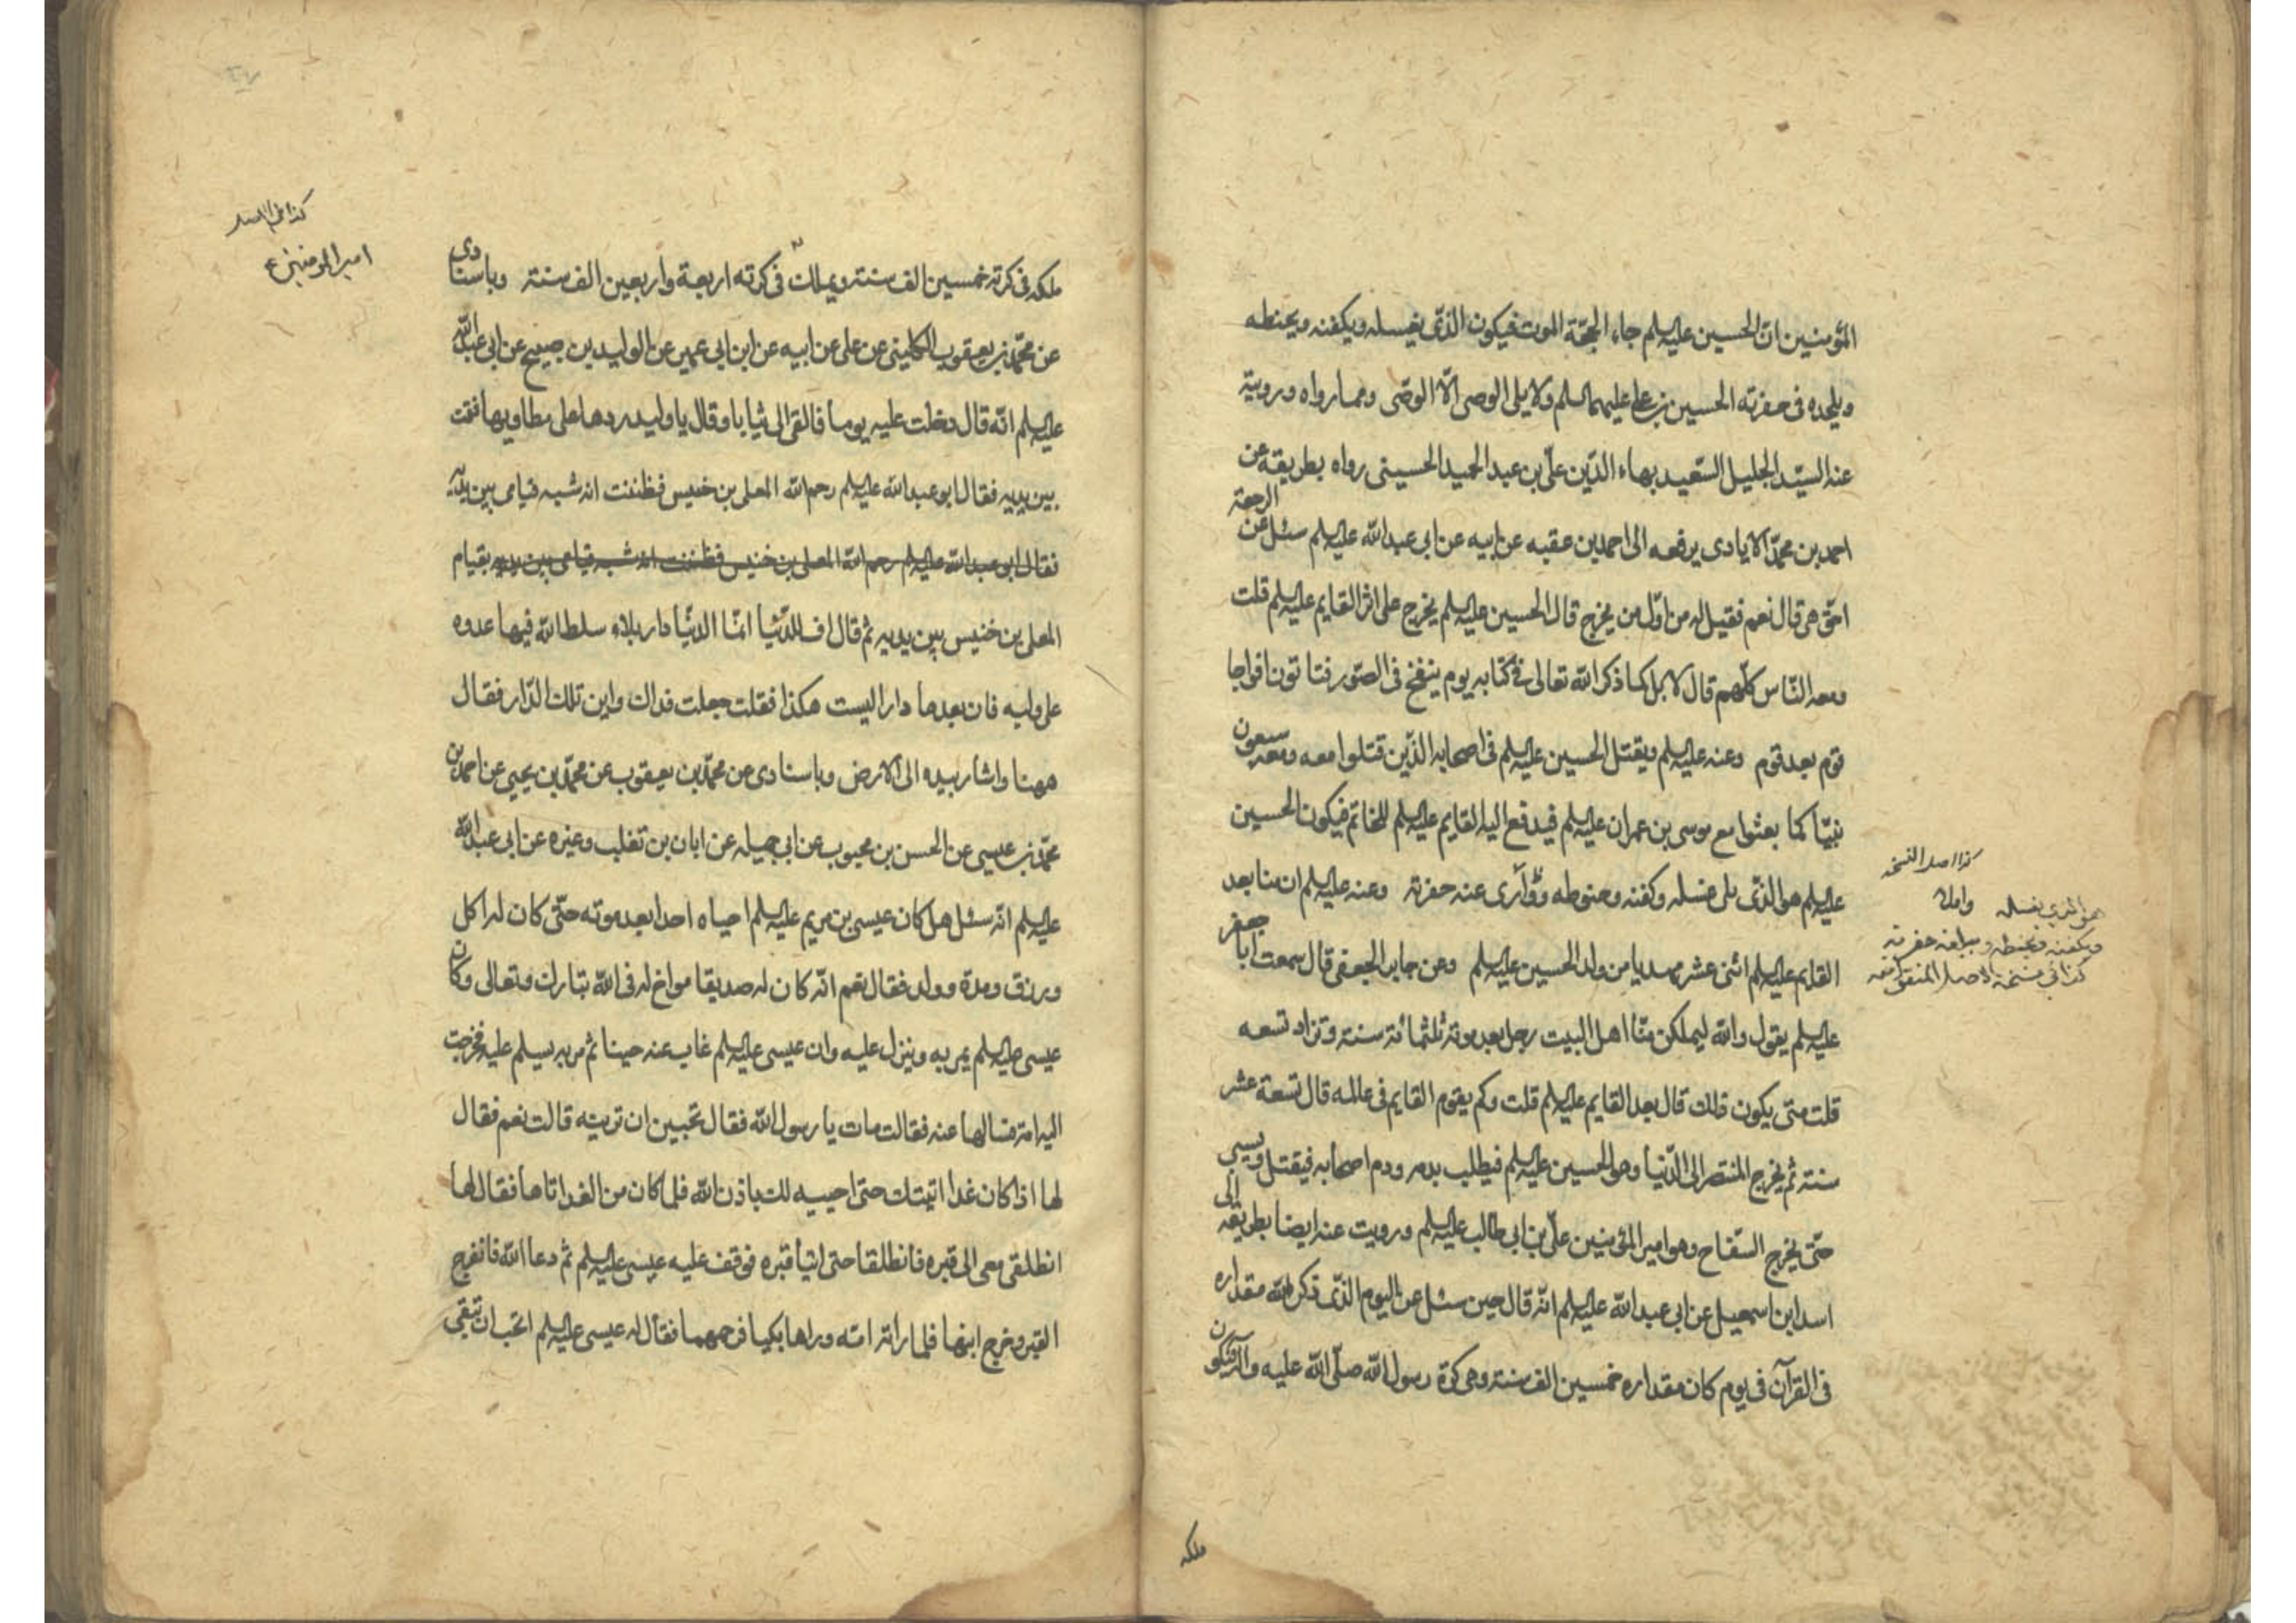 المؤمنين انّ الحسين عليه السلم جاء الحجّة الموت فيكون الذّى يغسله ويكفنه ويحنطه
ويلحده فى حفرته الحسين بن على عليهما السلم ولا يلى الوصى الّا الوصّى ومما رواه ورويته
عنه السيّد الجليل السّعيد بهاء الدّين علىّ بن عبد الحميد الحسينى رواه بطريقه عن
احمد بن محمّد الايادى يرفعه الى احمد بن عقبه عن ابيه عن ابى عبد الله عليه السلم سئل عن الرجعة
احقّ هى قال نعم فقيل له من اوّل من يخرج قال الحسين عليه السلم يخرج على اثر القايم عليه السلم قلت
ومعه النّاس كلّهم قال لا بل كما ذكر الله تعالى فى كتابه يوم ينفخ فى الصّور فتاتون افواجا
قوم بعد قوم وعنه عليه السلم ويقتل الحسين عليه السلم فى اصحابه الذّين قتلوا معه ومعه سبعون
نبيّا كما بعثوا مع موسى بن عمران عليه السلم فيدفع اليه القايم عليه السلم الخاتم فيكون الحسين
عليه السلم هو الذّى يلى غسله وكفنه وحنوطه وؤآرى عنه حفرته وعنه عليه السلم ان منا بعد
القايم عليه السلم اثنى عشر مهديا من ولد الحسين عليه السلم وعن جابر الجعفى قال سمعت ابا جعفر
عليه السلم يقول والله ليملكن منّا اهل البيت رجل بعد موته ثلثمائة سنة وتزاد تسعه
قلت متى يكون ذلك قال بعد القايم عليه السلم قلت وكم يقوم القايم فى عالمه قال تسعة عشر
سنة ثم يخرج المنتصر الى الدّنيا وهو الحسين عليه السلم فيطلب بدمه ودم اصحابه فيقتل ويسبى
حتّى يخرج السفّاح وهو امير المؤمنين علىّ بن ابى طالب عليه السلم ورويت عنه ايضا بطريقه الى
اسد ابن اسمعيل عن ابى عبد الله عليه السلم انّه قال حين سئل عن اليوم الذّى ذكر الله مقداره
فى القرآن فى يوم كان مقداره خمسين الف سنة وهى كرة رسول الله صلّى الله عليه وآله فيكون
ملكه
كذا اصل النسخه
هو الذي يغسله
ويكفنه ويحنطه حفرته
كذا في نسخة الاصل المنقول منه
ملكه فى كرته خمسين الف سنة ويملك فى كرته اربعة واربعين الف سنة وباسنادى
عن محمّد بن يعقوب الكلينى عن على عن ابيه عن ابن ابى عمير عن الوليد بن صبيح عن ابى عبد الله
عليه السلم انّه قال دخلت عليه يوما فالقى الى ثيابا وقال يا وليد ردها على مطاويها فقمت
بين يديه فقال ابو عبد الله عليه السلم رحم الله المعلى بن خنيس فظننت انه شبه قيامى بين يديه
فقال ابو عبد الله عليه السلم رحم الله المعلى بن خنيس فظننت انه شبه قيامى بين يديه بقيام
المعلى بن خنيس بين يديه ثم قال اف للدّنيا انمّا الدنيّا دار بلاء سلط الله فيها عدوه
على وليه فان بعدها دارا ليست هكذا فقلت جعلت فداك واين تلك الدّار فقال
ههنا واشار بيده الى الارض وباسنادى عن محمّد بن يعقوب عن محمّد بن يحيى عن احمد بن
محمّد بن عيسى عن الحسن بن محبوب عن ابى جميله عن ابان بن تغلب وغيره عن ابى عبد الله
عليه السلم انّه سئل هل كان عيسى بن مريم عليه السلم احياه احدا بعد موته حتّى كان له اكل
ورزق ومدة وولد فقال نعم انّه كان له صديقا مواخ له فى الله تبارك وتعالى وكان
عيسى عليه السلم يمر به وينزل عليه وان عيسى عليه السلم غاب عنه حينا ثم مر به ليسلم عليه فخرجت
اليه امّه فسالها عنه فقالت مات يا رسول الله فقال تحبين ان تريه قالت نعم فقال
لها اذا كان غدا اتيتك حتى احييه لك باذن الله فلما كان من الغد اتاها فقال لها
انطلقى معى الى قبره فانطلقا حتى اتيا قبره فوقف عليه عيسى عليه السلم ثم دعا الله فانفرج
القبر وخرج ابنها فلما راته امّه وراها بكيا فرحمهما فقال له عيسى عليه السلم اتحب ان تبقى
كذا فى الاصل
امير المؤمنين ع